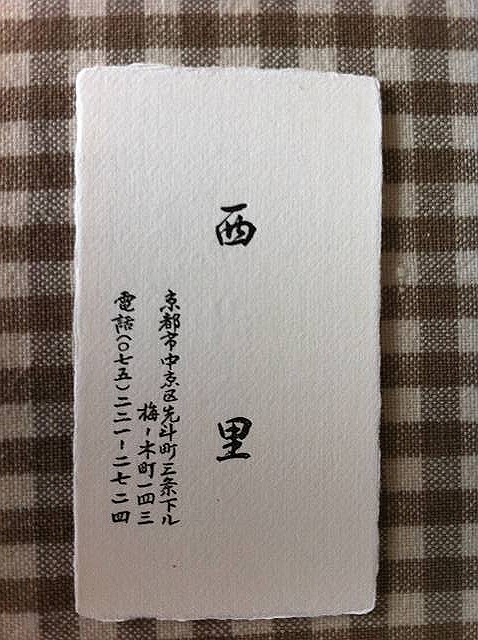 西里
京都市中京区先斗町三条下ル
梅ノ木町一四三
電話(〇七五)二二一ー二七二四